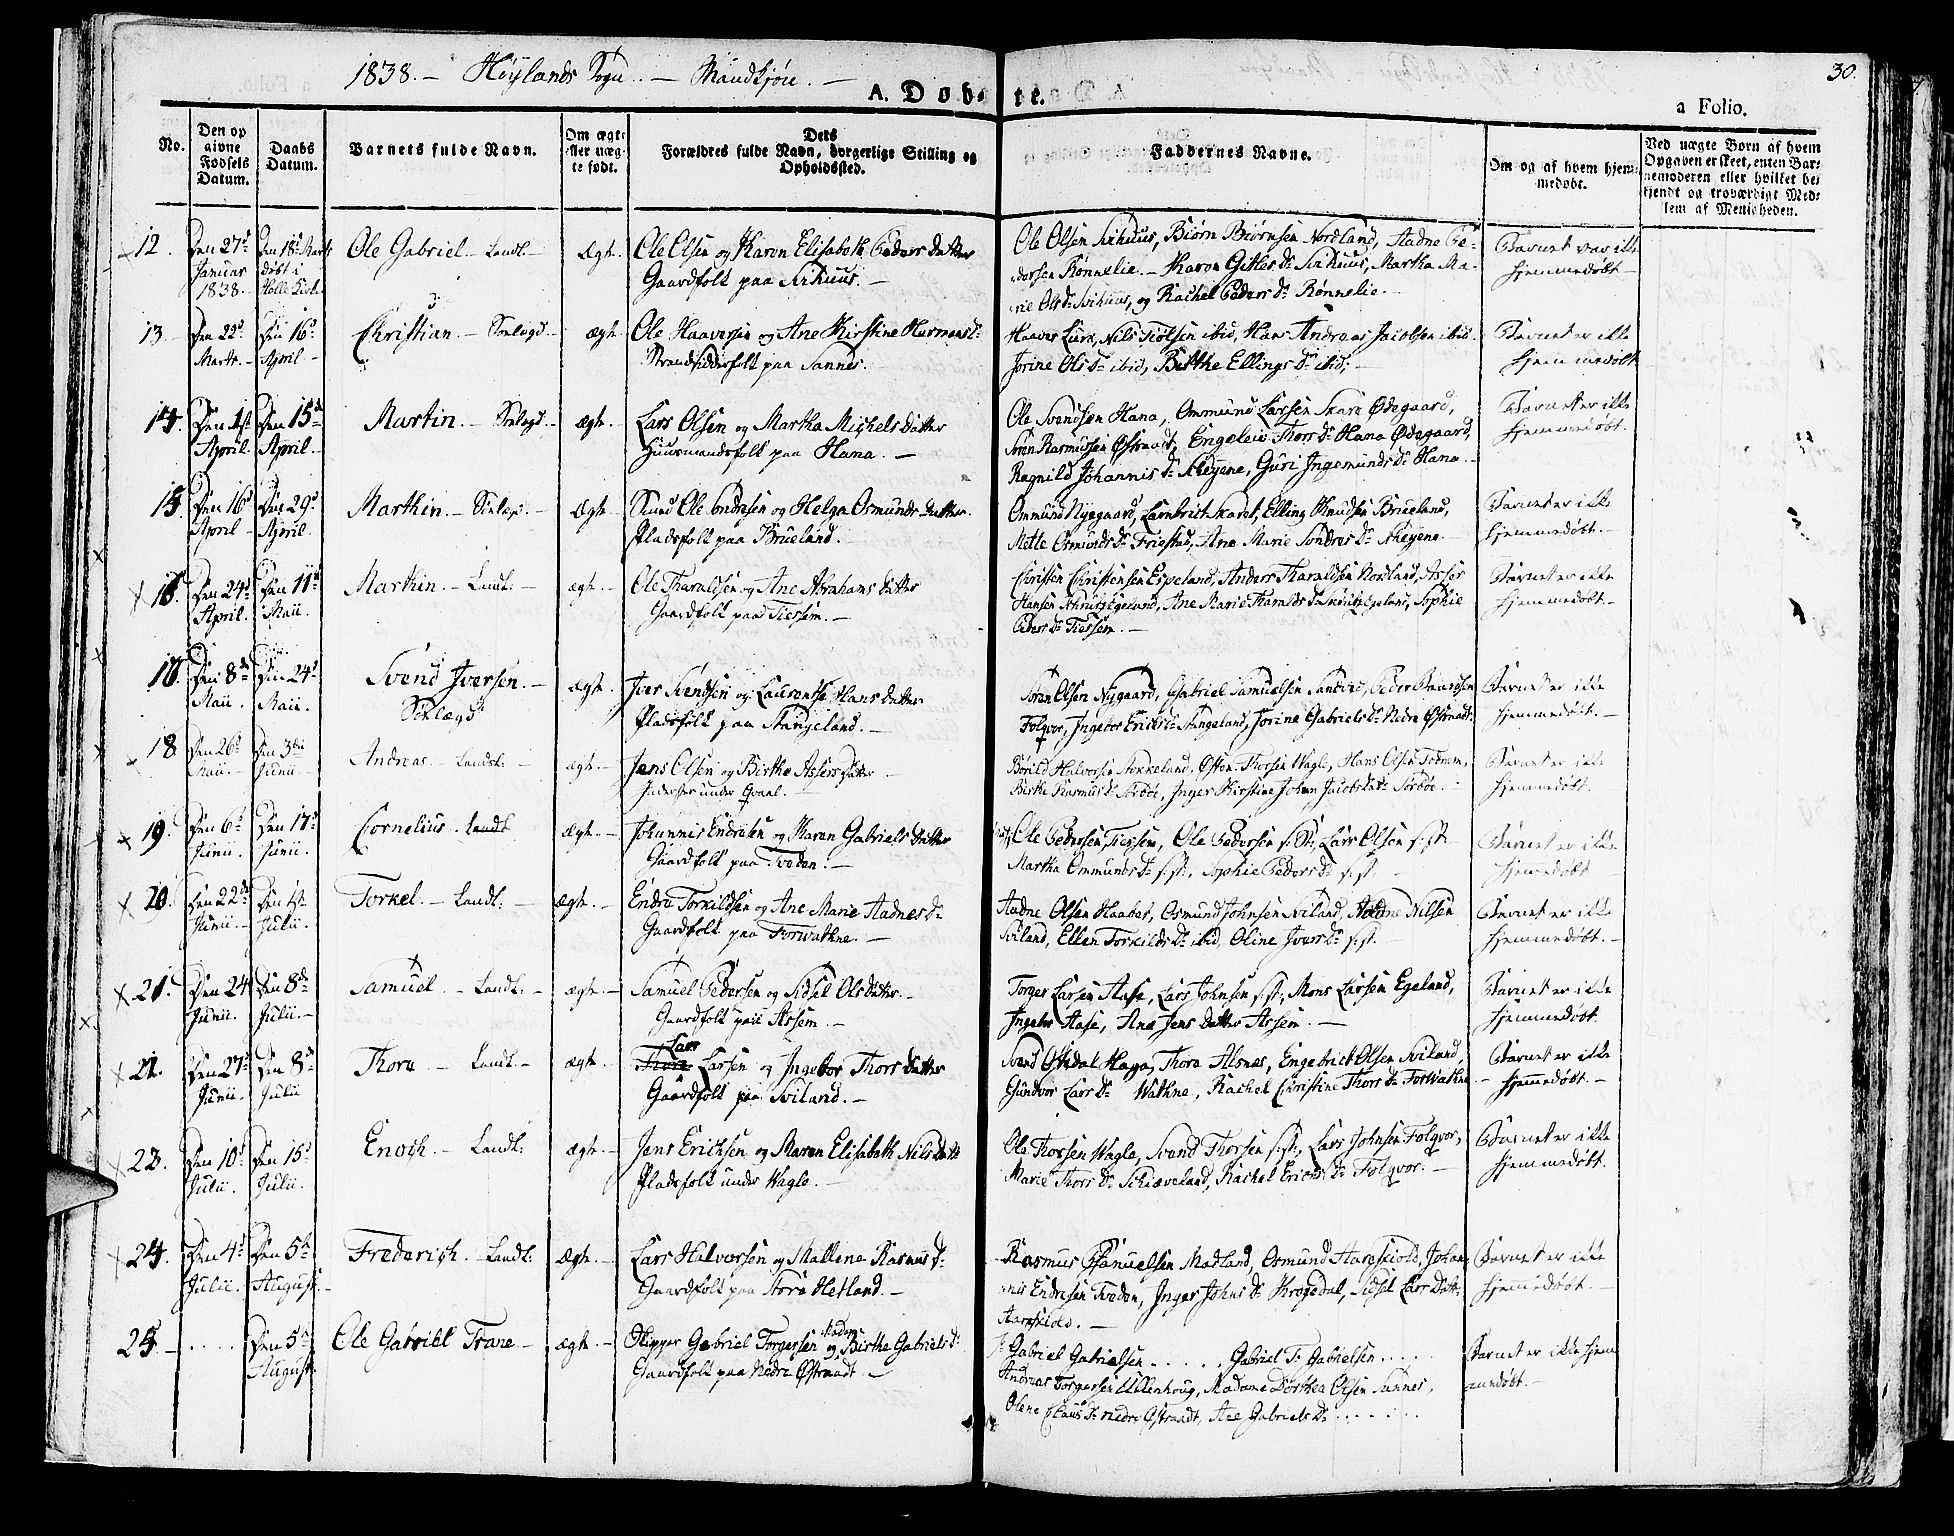 1838. — Høylands Sogn. — Mandkjøn. —
30.
A. Døbte.
a Folio.
No.
Den op
givne
Fødsels
Datum.
Daabs
Datum.
Barnets fulde Navn.
Om ægte
eller uæg-
te født.
Dets
Forældres fulde Navn, borgerlige Stilling og
Opholdssted.
Faddernes Navne.
Om og af hvem hjem-
medøbt.
Ved uægte Børn af hvem
Opgaven er skeet, enten Bar-
nemoderen eller hvilket be-
kjendt og troværdigt Med-
lem af Menigheden.
12. Den 27de
Januar
1838. Den 18de Marts
døbt i
Ole Gabriel — Landl. — Ægte. Ole Olsen og Karen Elisabeth Peders Datter
Gaardfolk paa Svihuus. —
Ole Olsen Svihuus, Biørn Biørnsen Nordland, Aadne Pe-
dersen Rønnelie. — Karen Gitles Dr Svihuus, Martha Ma-
rie Ols Dr Svihuus, og Rachel Peders Dr Rønnelie. —
Barnet var ikke
hjemmedøbt —
13 Den 22de
Marts. — Den 16de
April — Christian. — Sølægd — ægte Ole Haaversen og Ane Kirstine Hermans Dr
Strandsidderfolk paa Sannes. —
Haaver Lura, Nils ibid, Hans Andreas Jacobsen ibid.
Jorine Ols Dr ibid, Birthe Ellings Dr ibid; —
Barnet er ikke
hjemmedøbt
14. Den 1ste
April. Den 15de
April. Martin. — Sølægd. — ægte. Lars Olsen og Martha Michels Datter
Huusmandsfolk paa Hana. —
Ole Svendsen Hana, Ommund Larsen Skare Ødegaard,
Søren Rasmussen Østraadt, Engeleiv Thors Dr Hana Ødegaard,
Ragnild Johannis Dr Skeyene, Guri Ingemunds Dr Hana —
Barnet er ikke
hjemmedøbt.
15 Den 16de
April — Den 29de
April. Marthin. — Sølægd. — Ægte Knud Ole Endresen og Helga Osmunds Datter.
Pladsfolk paa Brueland.
Ommund Nygaard, Skaret, Elling Knudsen Brueland,
Mette Osmunds Dr Friestad, Ane Marie Dr Skeyene.
Barnet er ikke
hjemmedøbt. —
16. Den 24de
April. Den 11te
Maii. Marthin. — Landl. — ægte. Ole Tharaldsen og Ane Abrahams Datter
Gaardfolk paa Tiessem. —
Christen Christensen Espeland, Anders Tharaldsen Nordland, Asser
Hansen Egeland, Ane Marie Tharalds Dr Egeland, Sophie
Peders Dr Tiessem. —
Barnet er ikke
hjemmedøbt —
17. Den 8de
Maii. Den 24de
Maii. Svend Iversen. —
Sølægd ægte. Iver Svendsen og Laurentse Hans Datter
Pladsfolk paa Stangeland. —
Søren Olsen Nygaard, Gabriel Samuelsen Sandvig, Peder
Folqvor, Ingebor Eriks Dr Stangeland, Jorine Gabriels Dr Nedre Østraadt.
Barnet er ikke
hjemmedøbt. —
18. Den 26de
Maii. Den 3die
Junii. Andreas. — Landl. — ægte. — Jens Olsen og Birthe Assers Datter
Inderster under Qvaal. —
Halvorsen Stokkeland, Østen Thorsen Wagle, Hans Olsen
Birthe Rasmus Dr Sørbøe, Inger Kirstine Johan Jacobs Datter Sørbøe.
Barnet er ikke
hjemmedøbt.
19. Den 6te
Junii. Den 17de
Junii. Cornelius. Landl Ægte. — Johannis Endresen og Karen Gabriels Datter
Gaardfolk paa Tveden. —
Ole Pedersen Tiessem, Ole Pedersen s: St:, Lars Olsen s: st:
Martha Ommunds Dr s: st:, Sophie Peders Dr s: st:
Barnet er ikke
hjemmedøbt
20. Den 22de
Junii. Den 1ste
Julii. Torkel. — Landl: — ægte. — Endre Torkildsen og Ane Marie Aadnes Dr
Gaardfolk paa Forwathne. —
Aadne Olsen Haabet, Osmund Johnsen Sviland, Aadne Nilsen
Sviland, Ellen Torkilds Dr ibid, Oline Ivers Dr s: st. —
Barnet er ikke
hjemmedøbt. —
21. Den 24
Junii. Den 8de
Julii. — Samuel. — Landl: — ægte. — Samuel Pedersen og Sidsel Ols Datter. —
Gaardfolk paa Assem. —
Torger Larsen Aase, Lars Johnsen s: st:, Mons Larsen Egeland,
Ingebor Aase, Ane Jens Datter Assem. —
Barnet er ikke
hjemmedøbt.
22. Den 27de
Junii. Den 8de
Julii Thore — Landl. — ægte. Lars
Thore Larsen og Ingebor Thors Datter
Gaardfolk paa Sviland. —
Svend Ostedal Thore Alsnes, Engebrick Olsen Sviland,
Gundvor Lars Dr Wathne, Rachel Christine Thors Dr Forwathne —
Barnet er ikke
hjemmedøbt. —
23. Den 10de
Julii. Den 15de
Julii. Enoch. — Landl: ægte. — Jens Erichsen og Maren Elisabeth Nils Datt
Pladsfolk under Wagle. —
Ole Thorsen Wagle, Svend Thorsen s: st:, Lars Johnsen Folqvor,
Marie Thors Dr Schiæveland, Rachel Erichs Dr Folqvor. —
Barnet er ikke
hjemmedøbt.
24. Den 4de
Julii. Den 5te
August. Frederich. — Landl: Ægte. — Lars Halvorsen og Mallene Rasmus Dr
Gaardfolk paa Store Hetland. —
Rasmus Madland, Osmund Johan-
nis Endresen Tveden, Inger Johns Dr Krogedal, Sidsel Lars Datt:
Barnet er ikke
hjemmedøbt. —
25. — .... Den 5te
August. Ole Gabriel Trane — ægte. — Skipper Gabriel Torgersen og Madam Birthe Gabriels Dr
Gaardfolk paa Nedre Østraadt —
Gabriel Gabrielsen ..... Gabriel T: Gabrielsen .....
Andreas Torgersen Ullenhoug, Madame Dorthea Olsen Sannes,
Olene Claus Dr nedre Østraadt, Ane Gabriels Dr ......
Barnet er ikke hjem
medøbt. —